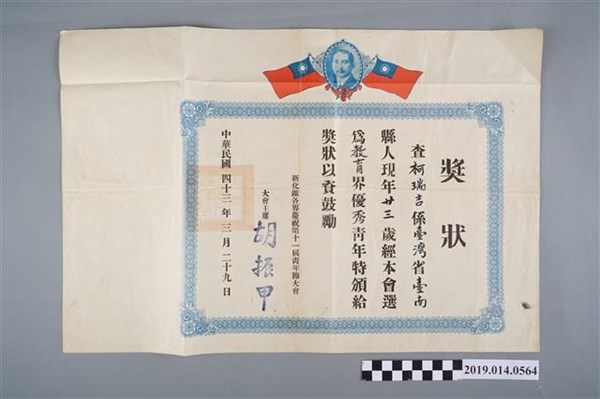 獎狀
查柯瑞吉係臺灣省臺南
縣人現年廿三歲經本會選
為教育界優秀青年特頒給
獎狀以資鼓勵
新化鎮各界慶祝第十一屆青年節大會
大會主席
胡振甲
中華民國四十三年三月二十九日
2019.014.0564